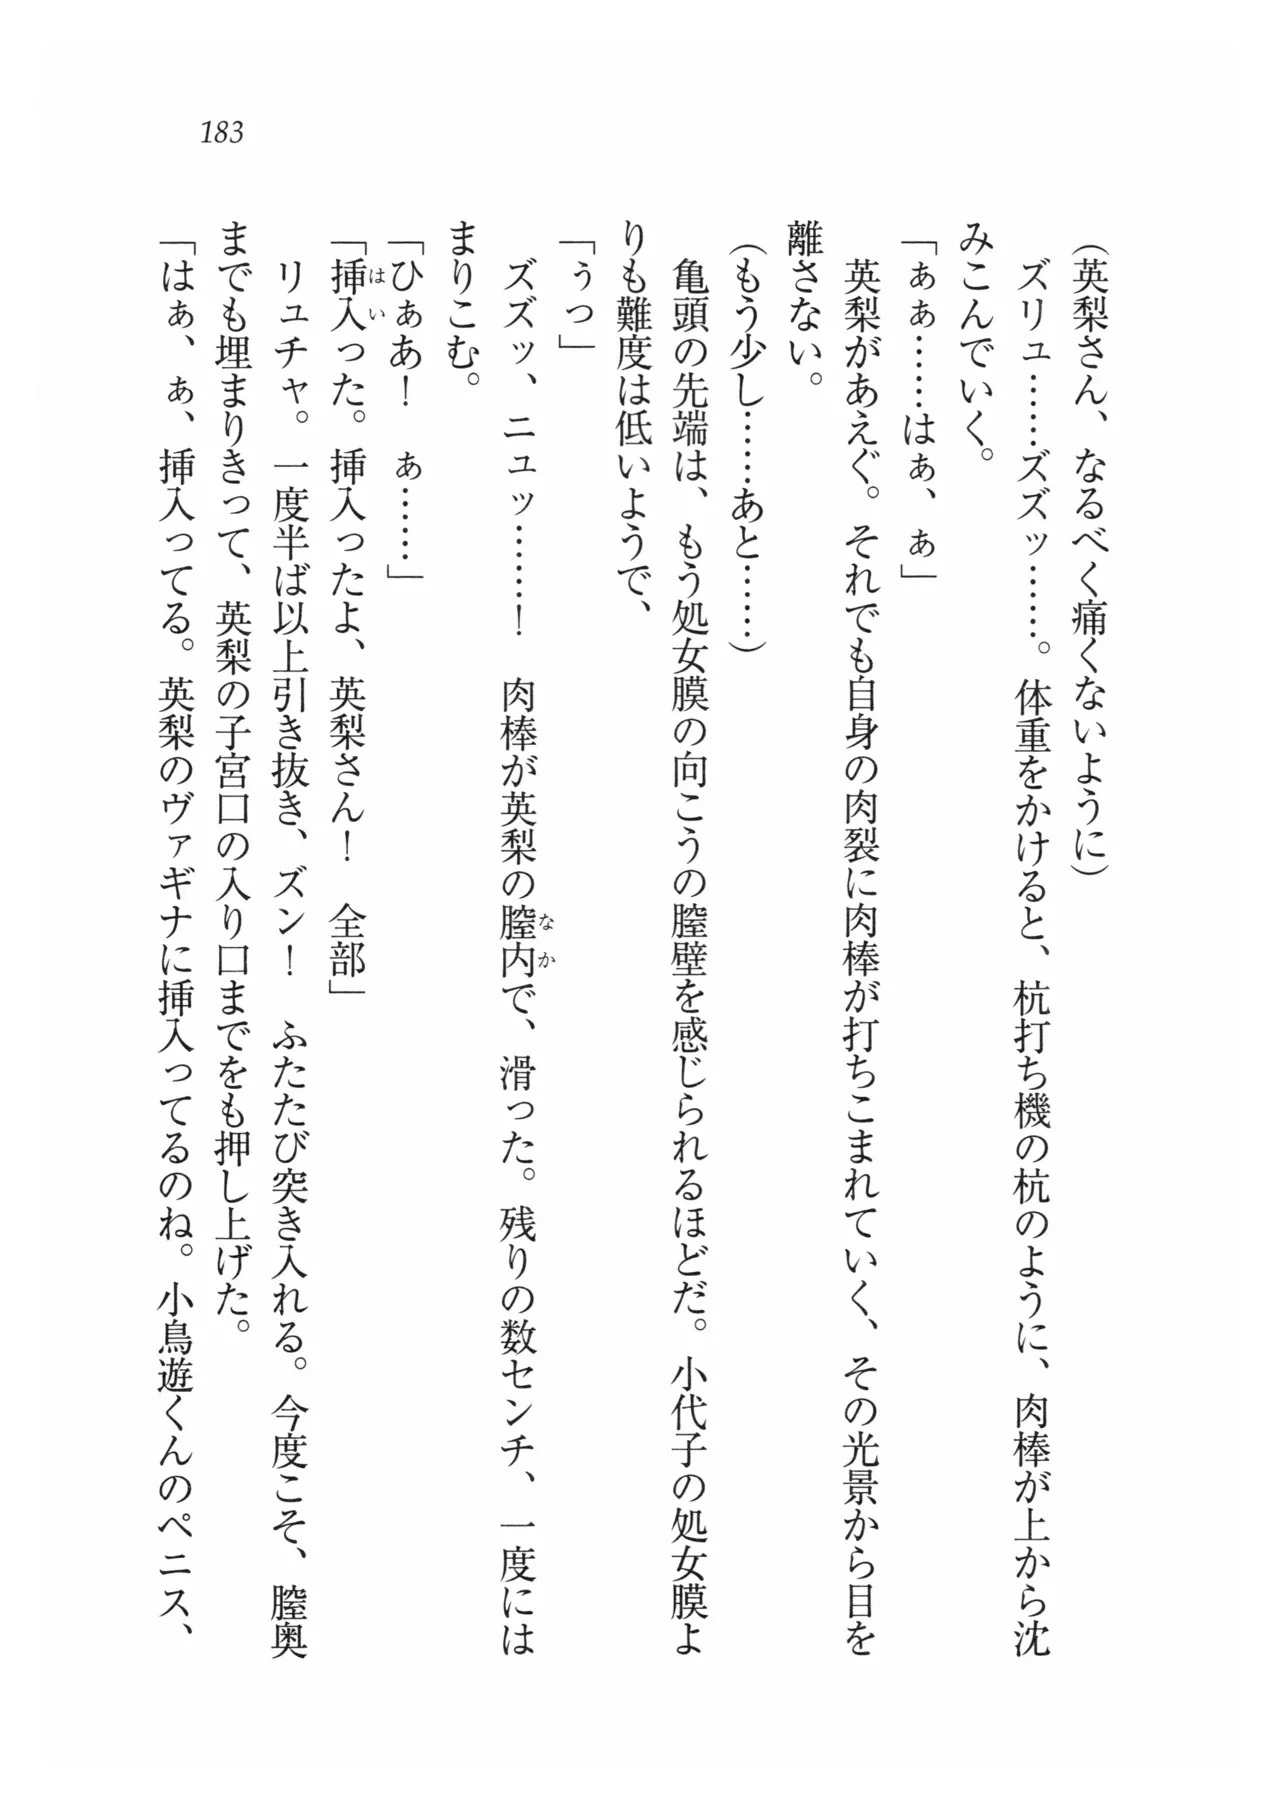 183
(英梨さん、なるべく痛くないように)
　ズリュ……ズズッ……。体重をかけると、杭打ち機の杭のように、肉棒が上から沈
みこんでいく。
「ぁぁ……はぁ、ぁ」
　英梨があえぐ。それでも自身の肉裂に肉棒が打ちこまれていく、その光景から目を
離さない。
(もう少し……あと……)
　亀頭の先端は、もう処女膜の向こうの膣壁を感じられるほどだ。小代子の処女膜よ
りも難度は低いようで、
「ぅっ」
　ズズッ、ニュッ……！　肉棒が英梨の膣内なかで、滑った。残りの数センチ、一度には
まりこむ。
「ひぁあ！　ぁ……」
「挿入はいった。挿入ったよ、英梨さん！　全部」
　リュチャ。一度半ば以上引き抜き、ズン！　ふたたび突き入れる。今度こそ、膣奥
までも埋まりきって、英梨の子宮口の入り口までをも押し上げた。
「はぁ、ぁ、挿入ってる。英梨のヴァギナに挿入ってるのね。小鳥遊くんのペニス、